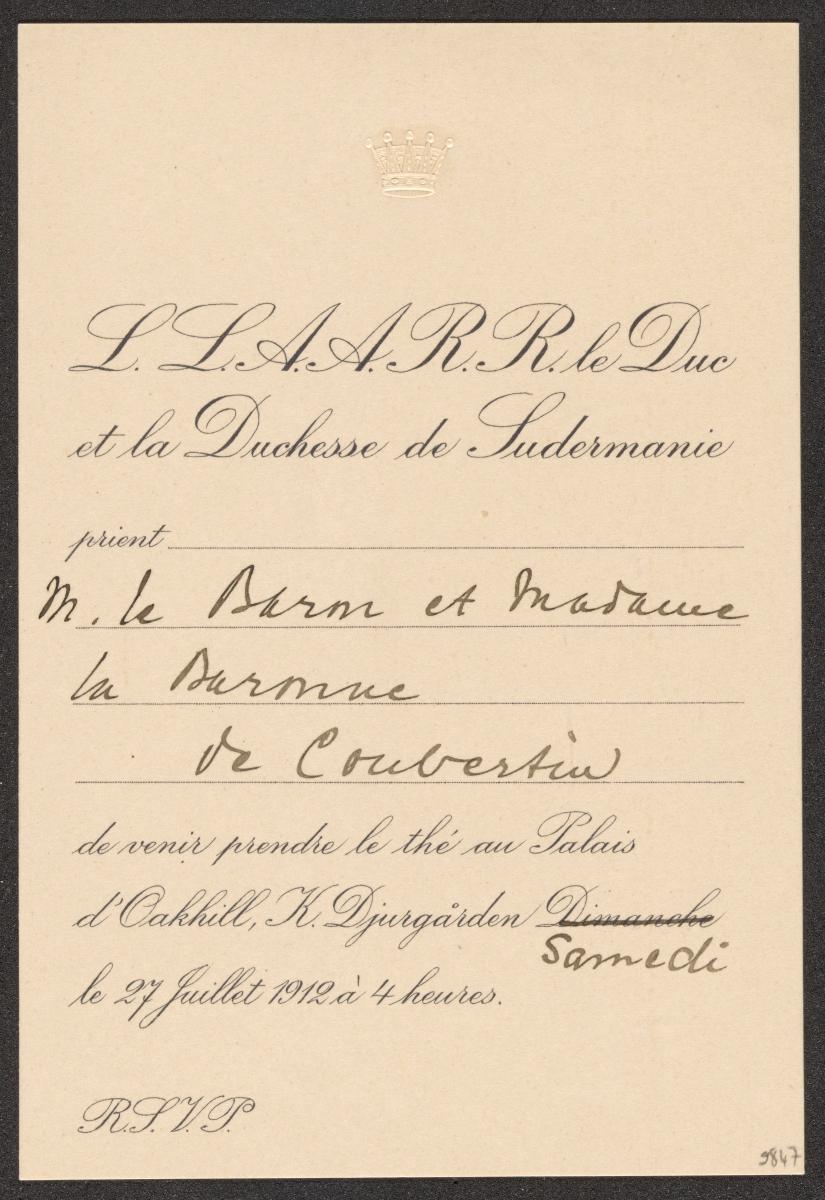 L. L. A. A. R. R. le Duc
et la Duchesse de Sudermanie
prient
M. le Baron et Madame
la Baronne
de Coubertin
de venir prendre le thé au Palais
d'Oakhill, K. Djurgården Dimanche
Samedi
le 27 Juillet 1912 à 4 heures.
R.S.V.P.
9847